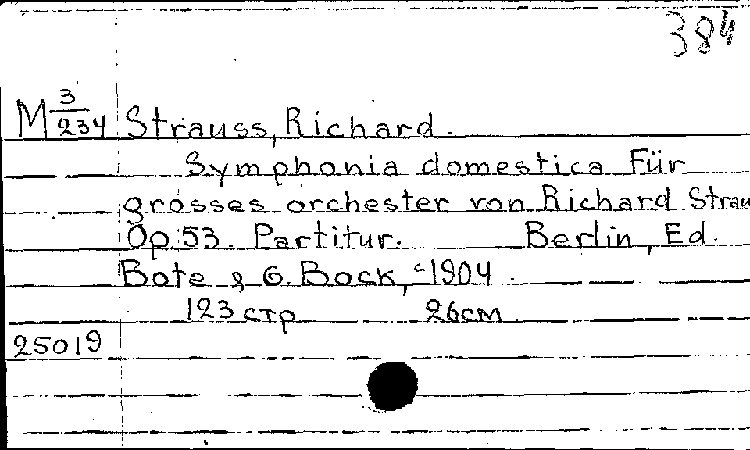 384
M 3/234 Strauss, Richard.
Symphonia domestica Für
grosses orchester von Richard Strau
Op. 53. Partitur. Berlin, Ed.
Bote & G. Bock, c1904.
123 стр 26см
25019